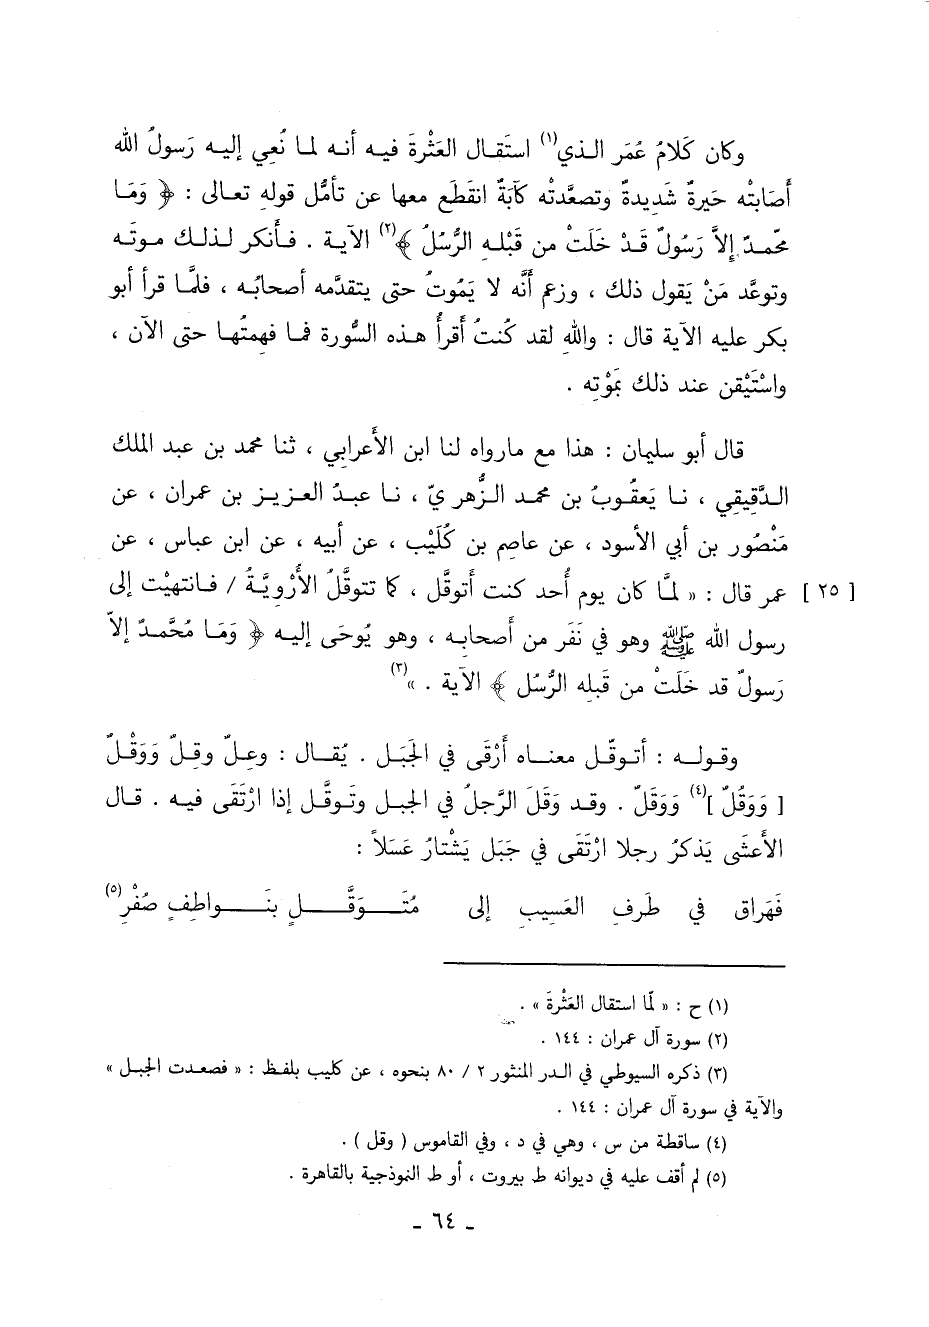 وكان كَلامُ عُمَر الـذي(١) استَقـال العَثْرةَ فيـه أنـه لمـا نُعي إليـه رَسولُ الله
أَصَابتْه حَيرةٌ شَديدةٌ وتصعَّدتْه كآبَةٌ انقَطَع معهـا عن تأمُّل قولهِ تعـالى : ﴿ وَمَـا
محّمدٌ إلاَّ رَسُولٌ قَـدْ خَلَتْ من قَبْلـهِ الرُّسُلُ ﴾(٢) الآيـة . فـأنكر لـذلـك مـوتَـه
وتوعَّد مَنْ يَقول ذلك ، وزعم أنَّه لا يَمُوتُ حتى يتقدَّمه أصحابُـه ، فلمَّـا قرأ أبو
بكر عليه الآية قال : واللهِ لقد كُنتُ أَقرأُ هـذه السُّورة فمـا فهمتُهـا حتى الآن ،
واسْتَيْقن عند ذلك بمَوْتِه .
قال أبو سليمان : هذا مع مارواه لنا ابن الأعرابي ، ثنا محمد بن عبد الملك
الـدَّقِيقي ، نـا يَعقُـوبُ بن محمد الـزُّهريّ ، نـا عبـدُ العـزيـز بن عمران ، عن
مَنْصُور بن أبي الأسود ، عن عاصم بن كُلَيْب ، عن أبيه ، عن ابن عباس ، عن
عمر قال : « لمَّا كان يوم أُحد كنت أتوقَّل ، كما تتوقَّلُ الأُرْويَّةُ / فـانتهيْت إلى [ ٢٥ ]
رسول الله ﷺ وهو في نَفَر من أصحابـه ، وهو يُوحَى إليـه ﴿ وَمَـا مُحَّمدٌ إلاّ
رَسولٌ قد خَلَتْ من قَبلِه الرُّسُل ﴾ الآية . »(٣)
وقـولـه : أتـوقّل معنـاه أرْقَى في الجَبَل . يُقـال : وعِـلٌ وقِلٌ وَوَقْلٌ
[ وَوَقُلٌ ](٤) وَوَقَلٌ . وقـد وَقَلَ الرَّجلُ في الجبل وتَوقَّل إذا ارْتَقَى فيـه . قـال
الأعشَى يَذكرُ رجلا ارْتَقَى في جَبَل يَشْتارُ عَسَلاً :
فَهَراق في طَرفِ العَسِيب إلى مُتَـوَقَّـلٍ بنَـواطِفٍ صُفْرِ(٥)
(١) ح : « لمّا استقال العَثْرةَ » .
(٢) سورة آل عمران : ١٤٤ .
(٣) ذكره السيوطي في الدر المنثور ٢ / ٨٠ بنحوه ، عن كليب بلفظ : « فصعدت الجبل »
والآية في سورة آل عمران : ١٤٤ .
(٤) ساقطة من س ، وهي في د ، وفي القاموس ( وقل ) .
(٥) لم أقف عليه في ديوانه ط بيروت ، أو ط النموذجية بالقاهرة .
ـ ٦٤ ـ